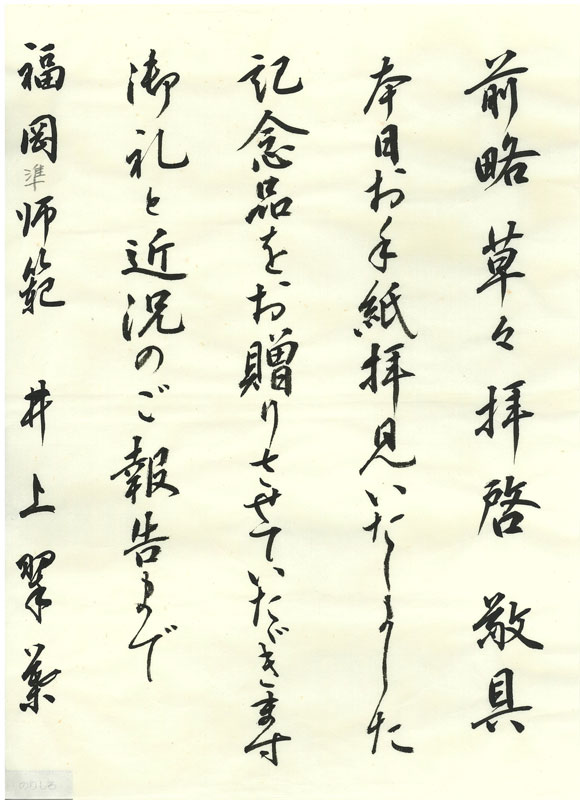 前略 草々 拝啓 敬具
本日お手紙拝見いたしました
記念品をお贈りさせていただきます
御礼と近況のご報告まで
福岡 準師範 井上翠葉